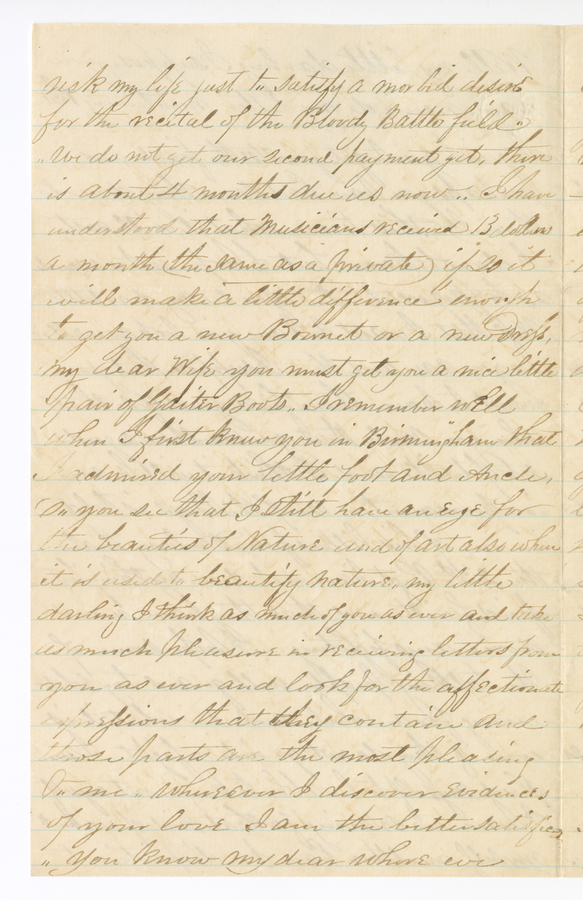 risk my life just to satisfy a morbid desire
for the recital of the Bloody Battle field"
"We do not get our second payment yet, there
is about 4 months due us now.. I have
understood that Musicians received 13 dollars
a month (the same as a private) if so it
will make a little difference enough
to get you a new Bonnet or a new Dress,
my dear Wife you must get you a nice little
pair of Gaiter Boots.. I remember well
when I first knew you in Birmingham that
I admired your little foot and Ancle,
So you see that I still have an eye for
the beauties of Nature and of art also when
it is used to beautify nature, my little
darling I think as much of you as ever and take
as much pleasure in receiving letters from
you as ever and look for the affectionate
expressions that they contain and
those parts are the most pleasing
to me, wherever I discover evidences
of your love I am the better satisfied
" you know my dear where ever